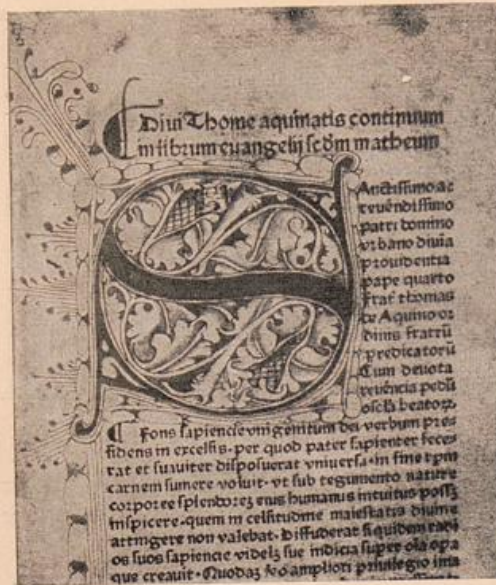 Diui Thome aquinatis continuum
in librum euangelij scd̃m matheum
Anctissimo ac
reuẽndissimo
patri domino
vrbano diuĩa
prouidentia
pape quarto
frat̃ thomas
de Aquino or
dinis fratrũ
predicatorũ
Cum deuota
reuẽcia pedũ
oscl̃a beatoꝝ.
Fons sapiencie vnigenitum dei verbum pres
sidens in excelsis. per quod pater sapienter fece
rat et suauiter disposuerat vniuersa. in fine tpm
carnem sumere voluit. vt sub tegumento nature
corporee splendoreꝫ eius humanus intuitus possꝫ
inspicere. quem in celsitudine maiestatis diuine
attingere non valebat. Diffuderat siquidem radi
os suos sapiencie videlꝫ sue indicia super oĩa opa
que creauit. Quodaꝫ ṽo ampliori priuilegio ima